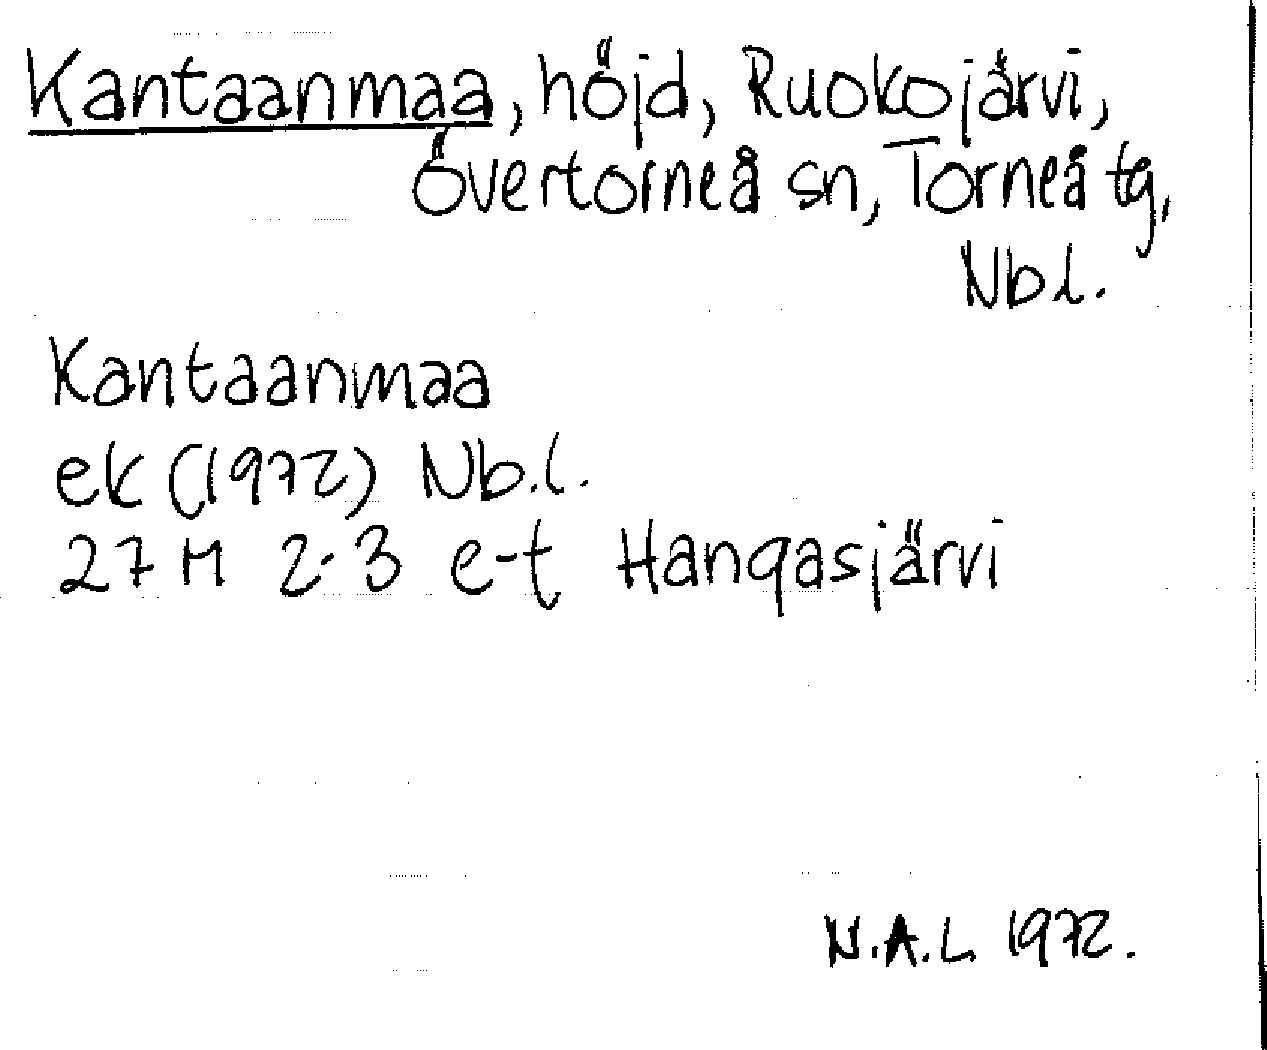 Kantaanmaa, höjd, Ruokojärvi,
Övertorneå sn, Torneå tg,
Nb.l.
Kantaanmaa
ek (1972) Nb.l.
27 M 2-3 e-t Hangasjärvi
N.A.L. 1972.